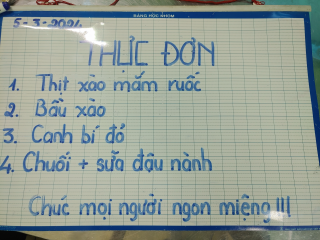 BẢNG HỌC NHÓM
5-3-2024
THỰC ĐƠN
1. Thịt xào mắm ruốc
2. Bầu xào
3. Canh bí đỏ
4. Chuối + sữa đậu nành
Chúc mọi người ngon miệng!!!